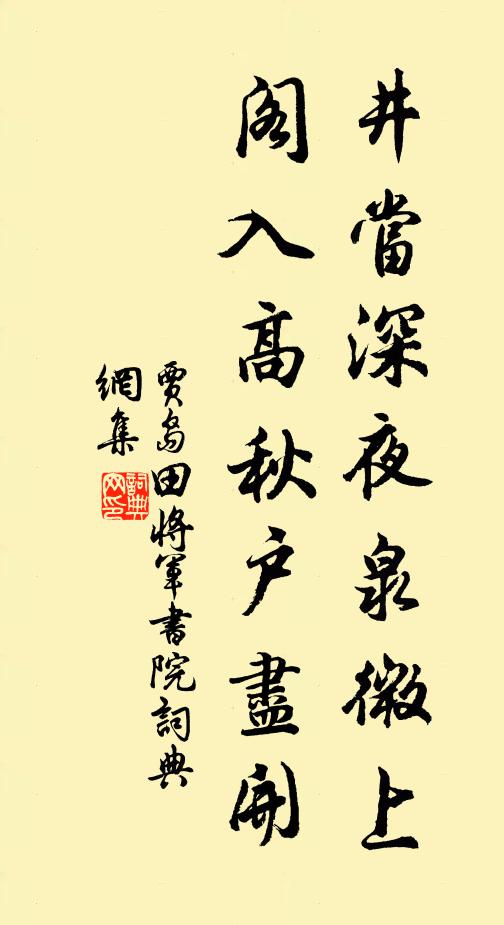 井當深夜泉微上
閣入高秋戶盡開
賈島田將軍書院詞典
網集
詞典
网印